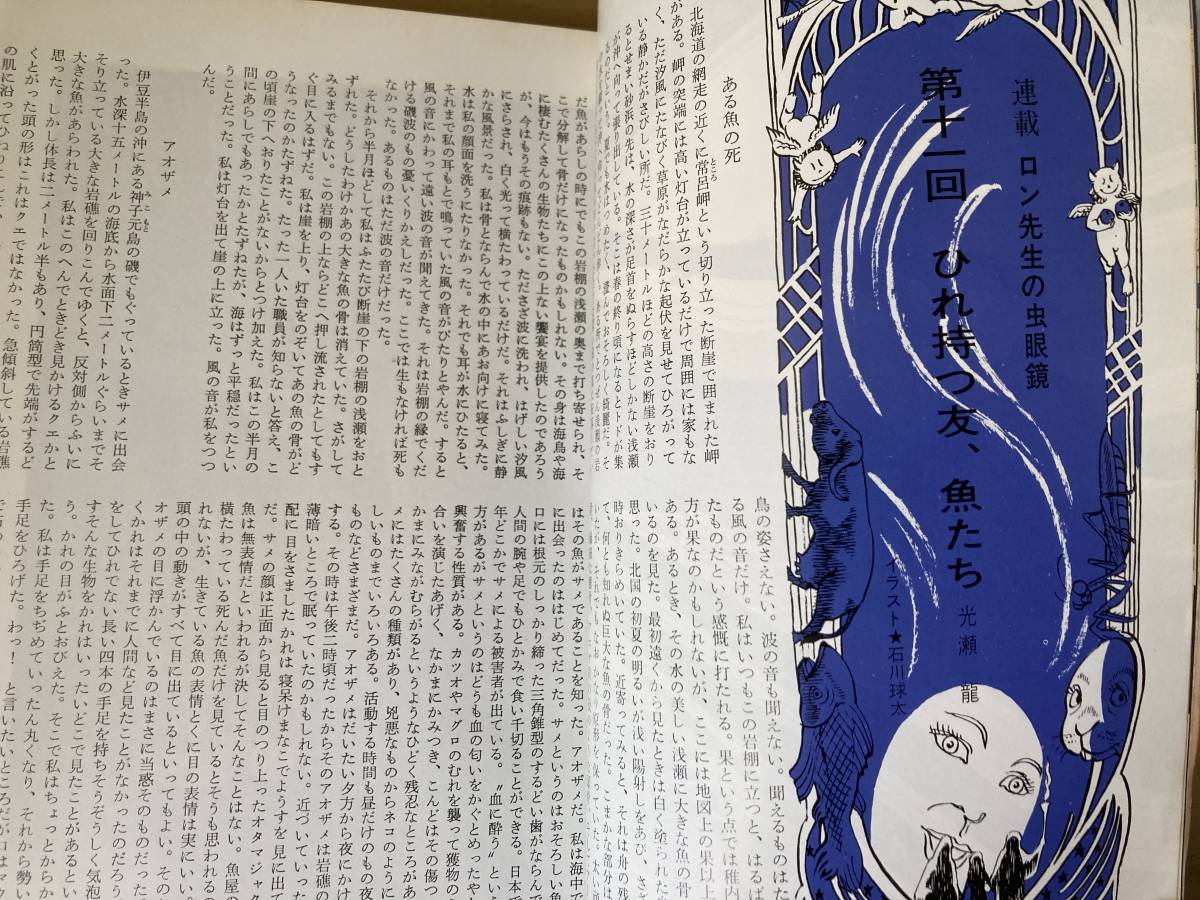 連載 ロン先生の虫眼鏡
第十一回 ひれ持つ友、魚たち
光瀬 龍
イラスト★石川球太
ある魚の死
北海道の網走の近くに常呂岬という切り立った断崖で囲まれた岬
ところ
がある。岬の突端には高い灯台が立っているだけで周囲には家もな
く、ただ汐風にたなびく草原がなだらかな起伏を見せてひろがって
いる静かだがさびしい所だ。二、三十メートルほどの高さの断崖をおり
るとせまい砂浜の先は、水の深さが足首をぬらすほどしかない浅瀬
が沖へ向って張り出している。そこは春の終り頃になるとトドが集
鳥の姿さえない。波の音も聞えない。聞えるものはた
る風の音だけ。私はいつもこの岩棚に立つと、はるば
たものだという感慨に打たれる。果という点では稚内
方が果なのかもしれないが、ここには地図上の果以上
ある。あるとき、その水の美しい浅瀬に大きな魚の骨
いるのを見た。最初遠くから見たときは白く塗られた
思った。北国の初夏の明るいが浅い陽射しをあび、さざ
時おりきらめいていた。近寄ってみると、それは舟の残
て、何とも知れぬ巨大な魚の骨だった。こまかな部分は
だ魚があらしの時にでもこの岩棚の浅瀬の奥まで打ち寄せられ、そ
こで分解して骨だけになったものかもしれない。その身は海鳥や海
に棲むたくさんの生物たちにこの上ない饗宴を提供したのであろう
が、今はもうその痕跡もない。たださざ波に洗われ、はげしい汐風
にさらされ、白く光って横たわっているだけだ。それはふしぎに静
かな風景だった。私は骨とならんで水の中にあお向けに寝てみた。
水は私の顔面を洗うにたりなかった。それでも耳が水にひたると、
それまで私の耳もとで鳴っていた風の音がぴたりとやんだ。すると
風の音にかわって遠い波の音が聞えてきた。それは岩棚の縁でくだ
ける磯波のもの憂いくりかえしだった。ここでは生もなければ死も
なかった。あるものはただ波の音だけだった。
それから半月ほどして私はふたたび断崖の下の岩棚の浅瀬をおと
ずれた。どうしたわけかあの大きな魚の骨は消えていた。さがして
みるまでもない。この岩棚の上ならどこへ押し流されたとしてもす
ぐ目に入るはずだ。私は崖を上り、灯台をのぞいてあの魚の骨がど
うなったのかたずねた。たった一人いた職員が知らないと答え、こ
の頃崖の下へおりたことがないからとつけ加えた。私はこの半月の
間にあらしでもあったかとたずねたが、海はずっと平穏だったとい
うことだった。私は灯台を出て崖の上に立った。風の音が私をつつ
んだ。
アオザメ
伊豆半島の沖にある神子元島の磯でもぐっているときサメに出会
みこもと
った。水深十五メートルの海底から水面下二メートルぐらいまでそ
そり立っている大きな岩礁を回りこんでゆくと、反対側からふいに
大きな魚があらわれた。私はこのへんでときどき見かけるクエかと
思った。しかし体長は二メートル半もあり、円筒型で先端がするど
くとがった頭の形はこれはクエではなかった。急傾斜している岩礁
はその魚がサメであることを知った。アオザメだ。私は海中で
に出会ったのははじめてだった。サメというのはおそろしい魚
ロには根元のしっかり締った三角錐型のするどい歯がならんで
人間の腕や足でもひとかみで食い千切ることができる。日本で
年どこかでサメによる被害者が出ている。〝血に酔う〟という
方があるがサメというのはどうも血の匂いをかぐとめったやた
興奮する性質がある。カツオやマグロのむれを襲って獲物の
合いを演じたあげく、なかまにかみつき、こんどはその傷つ
かまにみながむらがるというようなひどく残忍なところがあ
メにはたくさんの種類があり、兇悪なものからネコのように
しいものまでいろいろある。活動する時間も昼だけのもの夜
ものなどさまざまだ。アオザメはだいたい夕方から夜にかけ
する。その時は午後二時頃だったからそのアオザメは岩礁の
薄暗いところで眠っていたのかもしれない。近づいていった
配に目をさましたかれは寝呆けまなこでようすを見に出て
だ。サメの顔は正面から見ると目のつり上ったオタマジャク
魚は無表情だといわれるが決してそんなことはない。魚屋の
横たわっている死んだ魚だけを見ているとそうも思われるか
れないが、生きている魚の表情とくに目の表情は実にいい。
頭の中の動きがすべて目に出ているといってもよい。その
オザメの目に浮かんでいるのはまさに当惑そのものだった
くかれはそれまでに人間など見たことがなかったのだろう
をしてひれでない長い四本の手足を持ちぞうぞうしく気泡
すそんな生物をかれはいったいどこで見たことがあるとい
う。かれの目がふとおびえた。そこで私はちょっとからか
た。私は手足をちぢめていったん丸くなり、それから勢い
手足をひろげた。わっ! と言いたいところだが口はマウ